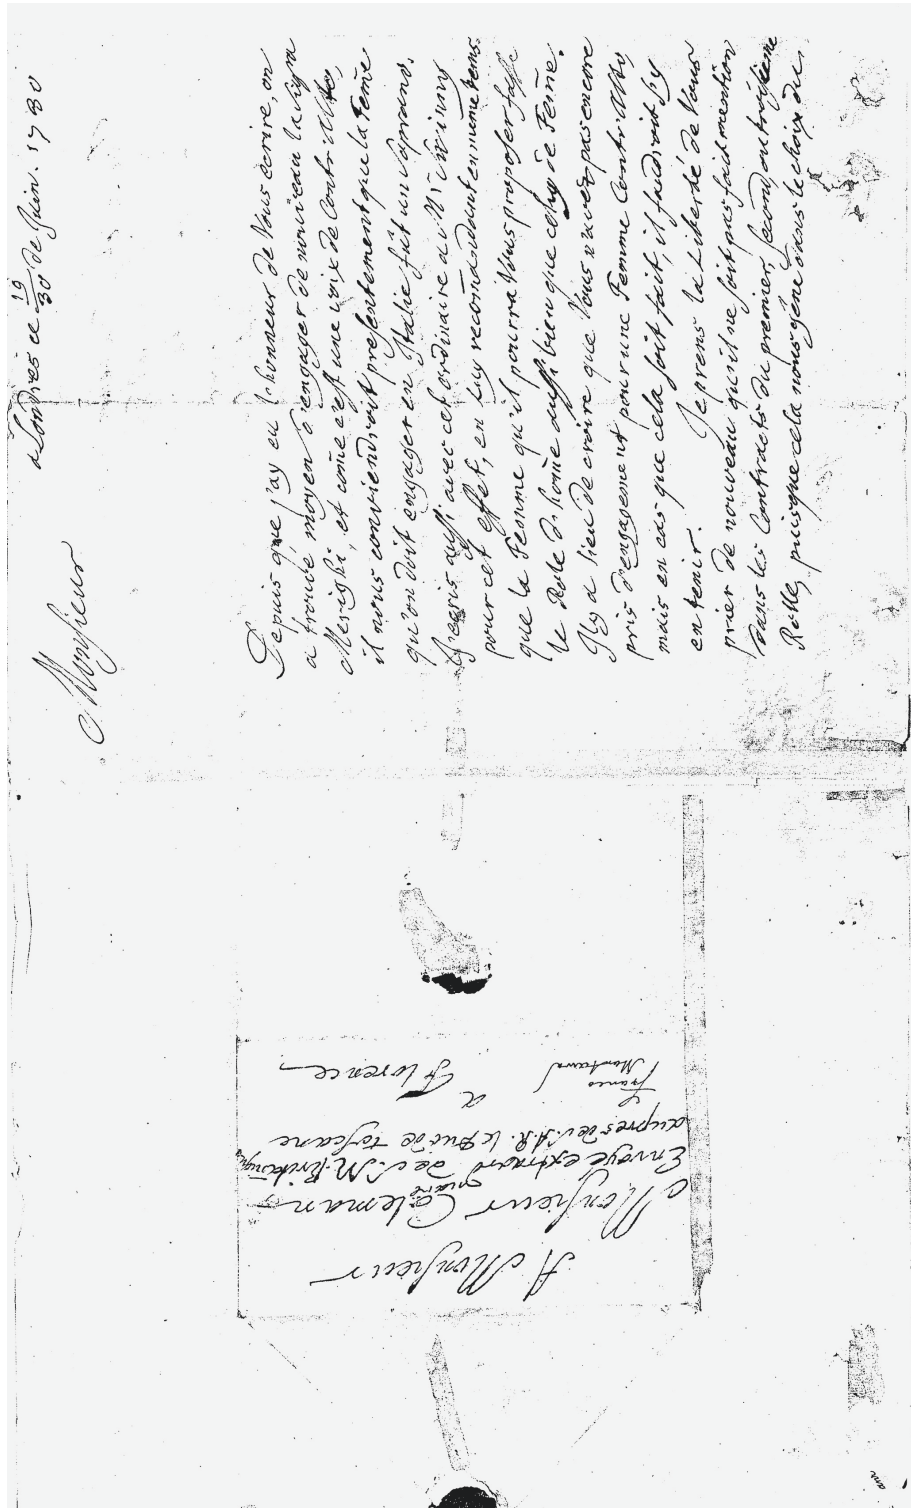 a Londres ce 19/30 de Juin. 1730
Monsieur
Depuis que j'ay eu l'honneur de Vous ecrire, on
a trouvé moyen d'engager de nouveau la Sig.ra
Merighi, et come c'est une voix de Contr'Alto,
il nous conviendroit presentement que la Feme
qu'on doit engager en Italie fut un Soprano.
J'ecris aussi avec cet ordinaire a Mr Swinny
pour cet effet, en luy recomandant en même tems
que la Femme qu'il pourra Vous proposer fasse
le Role d'home aussi bien que celuy de Feme.
Il y a lieu de croire que Vous n'avez pas encore
pris d'engagement pour une Femme Contr'Alto,
mais en cas que cela soit fait, il faudroit s'y
en tenir. Je prens la liberté de Vous
prier de nouveau qu'il ne soit pas fait mention
dans les Contracts du premier, second ou troisieme
Rolle, puisque cela nous géne dans le choix du
A Monsieur
Monsieur Coleman
Envoyé extraord.naire de S. M. Britannique
aupres de S. A. R. le Duc de toscane
a
Florence
Franco
Mantoua